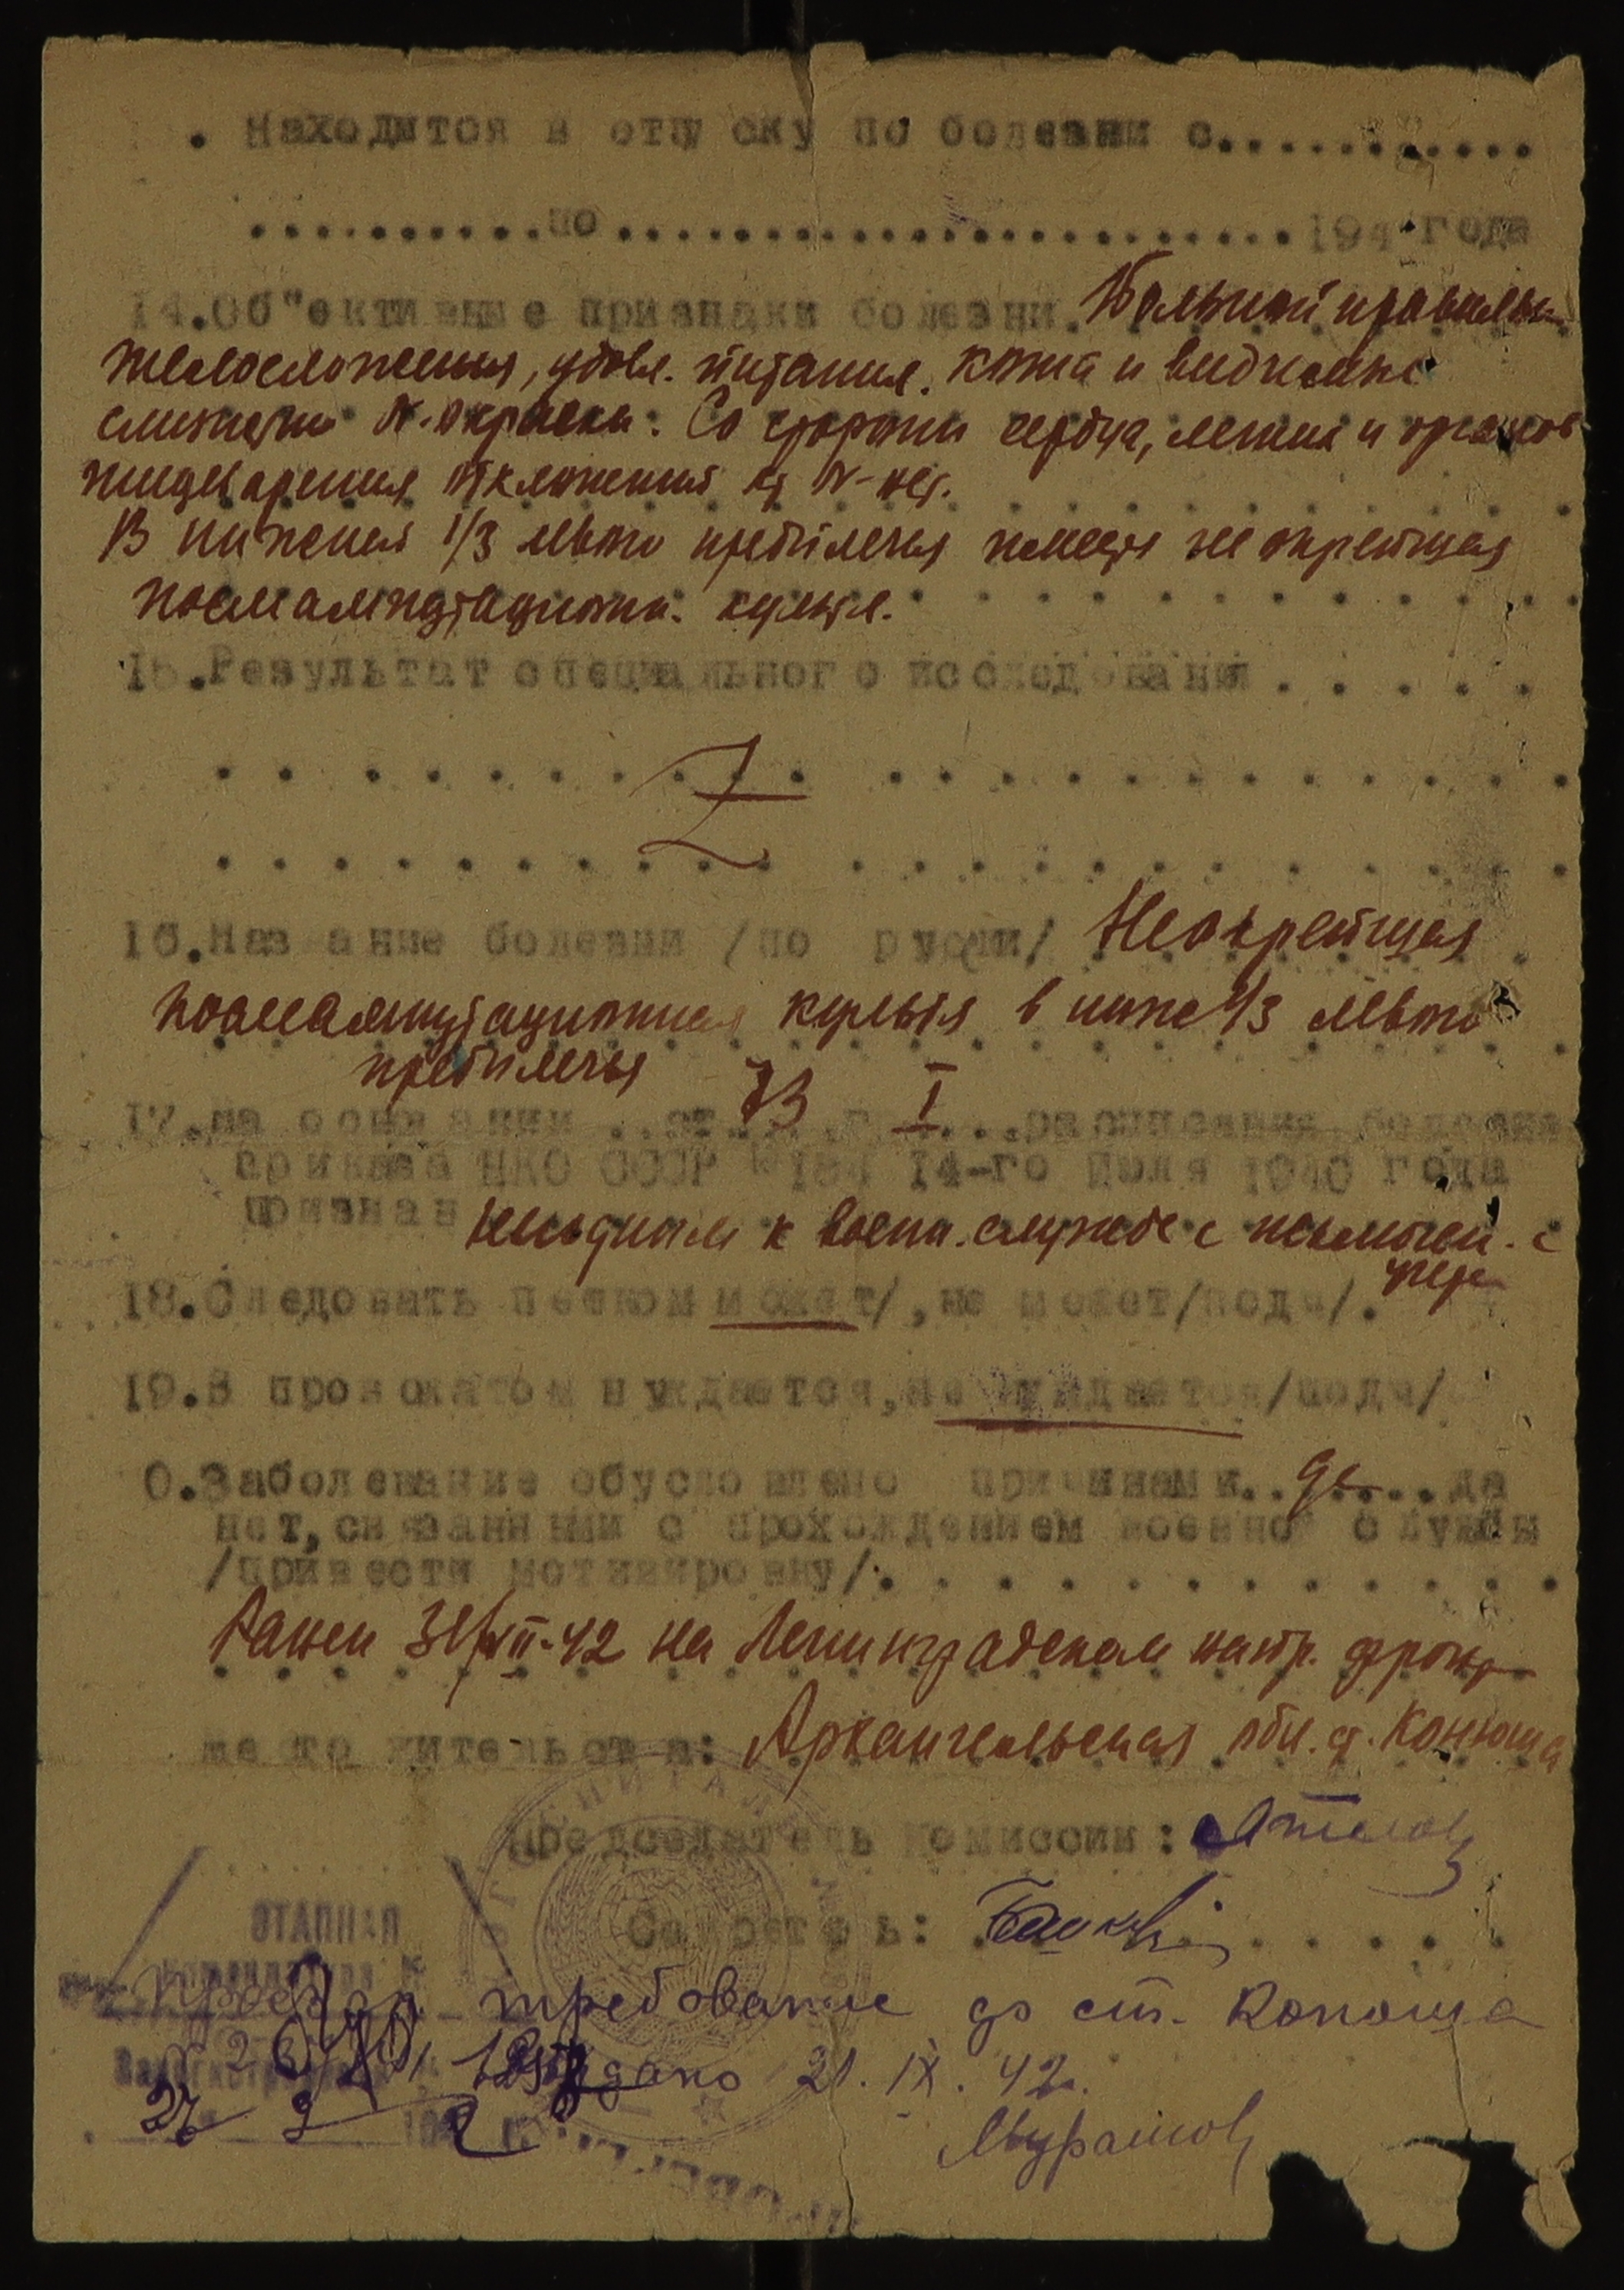 . Находится в отпуску по болезни с...........
..........по.......................194 года
14.Об"ективные признаки болезни. Больной правильн
телосложения, удовл. питания. Кожа и видимые
слизистые N. окраски. Со стороны сердца, легких и органов
пищеварения отклонений от N - нет.
В нижней 1/3 левого предплечья имеется не окрепшая
послеампутационн. культя.
15.Результат специального исследования . . . . .
Z
16.Название болезни /по русски/ Неокрепшая
послеампутационная культя в нижн 1/3 левого
предплечья
17.На основании ..ст. 73 .. I ...расписания болезни
приказа НКО СССР № 184 14-го Июля 1940 года
признан негодным к воен. службе с исключен. с
учета
18.Следовать пешком может/,не может/подч/.
19.В провожатом нуждается,не нуждается/подч/
0.Заболевание обусловлено причинами..да....да
нет,связанными с прохождением военной службы
/привести мотивировку/. . . . . . . . . . . .
Ранен 31/VII-42 на Ленинградском напр. фронт
место жительства: Архангельская обл. ст. Коноша
Председатель Комиссии:
Секретарь:
ЭТАПНАЯ
требование до ст. Коноша
выдано 21. IX. 42.
27 9 1942 г.
Мурашов